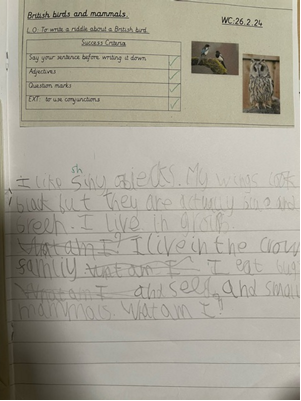 British birds and mammals.
WC: 26.2.24
L.O: To write a riddle about a British bird.
Success Criteria
Say your sentence before writing it down
Adjectives
Question marks
EXT: to use conjunctions
sh
I like Siny objects. My wings look
black but they are actually and
green. I live in
What am I? I live in the crow
family What am I I eat
What am I and and small
mammals. Wat am I?